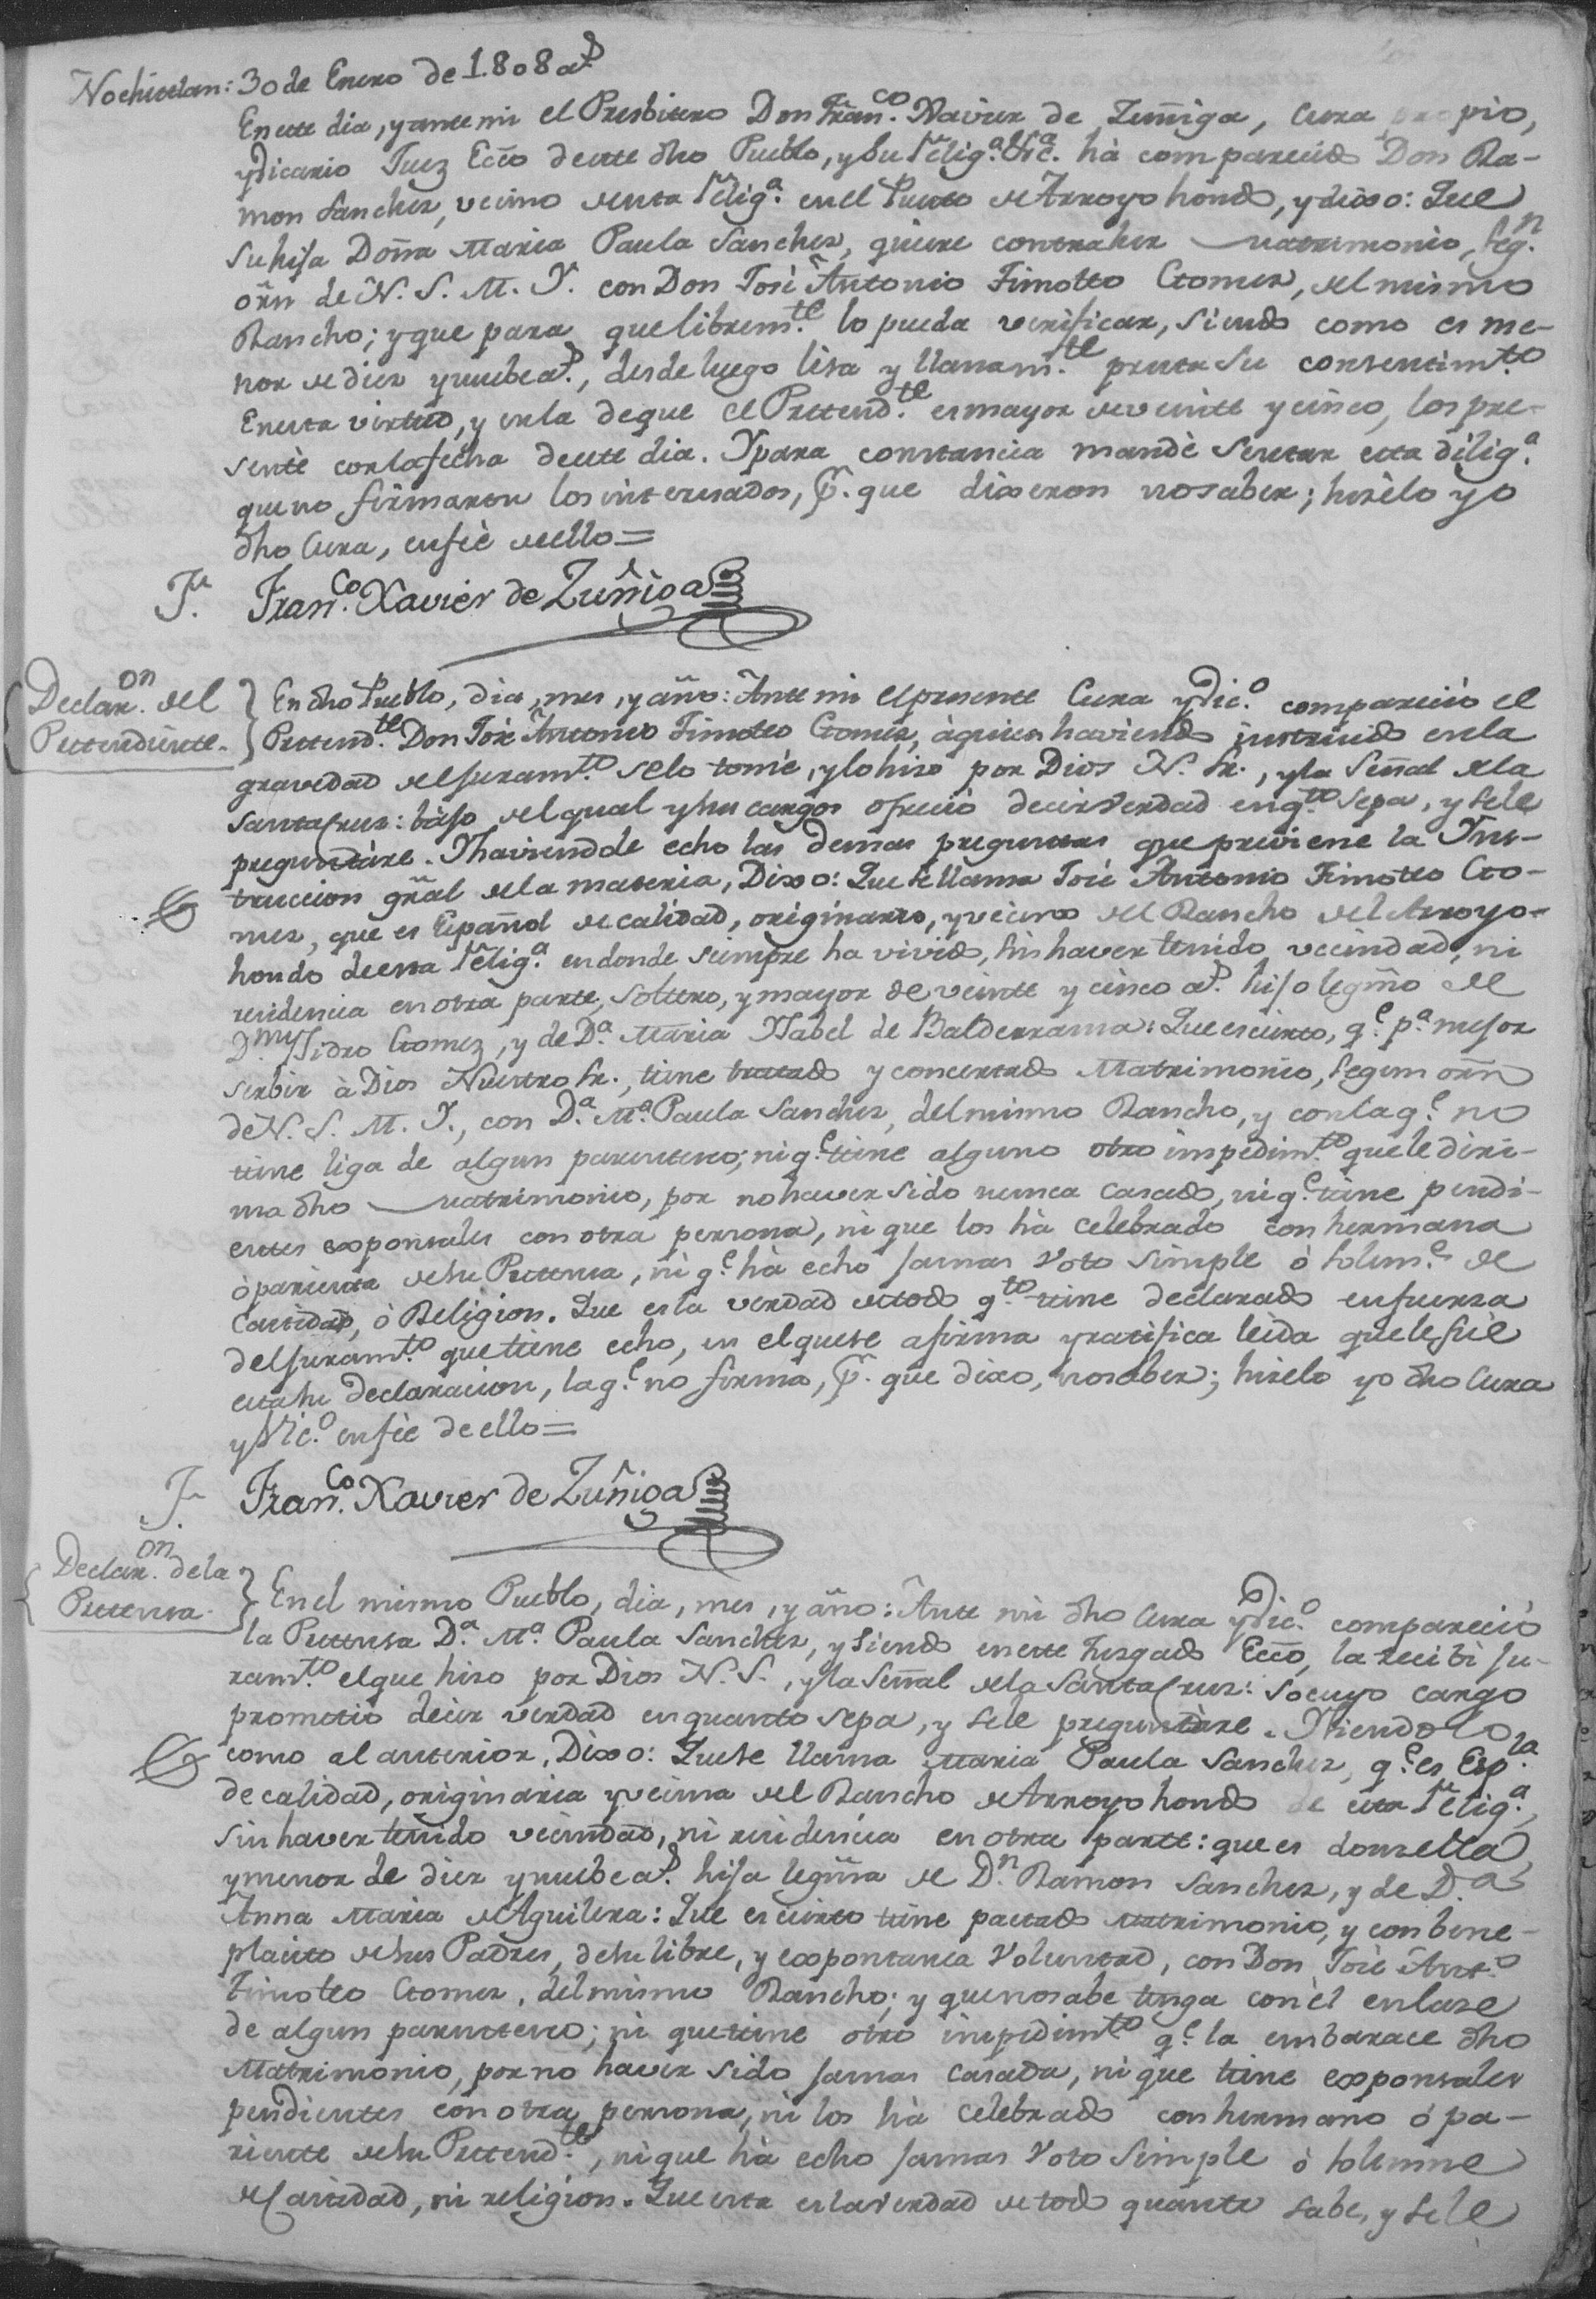 Nochistlan: 30 de Enero de 1808 a.s
En este dia, y ante mi el Presbitero Don Fran.co Xavier de Zuñiga, Cura propio,
y Vicario Juez Ecc̃o de este dho Pueblo, y su Felig.a &c.a hà comparecido Don Ra-
mon Sanches, vecino de esta Felig.a en el Puesto de Arroyo hondo, y dixo: Que
su hija Doña Maria Paula Sanches, quiere contraher Matrimonio, seg.n
orñ de N. S. M. Y. con Don José Antonio Timoteo Gomes, del mismo
Rancho; y que para que librem.te lo pueda verificar, siendo como es me-
nor de dies y nuebe a.s, desde luego lisa y llanam.te presta su consentim.to
En esta virtud, y en la de que el Pretend.te es mayor de veinte y cinco, los pre-
sentè con la fecha de este dia. Y para constancia mandè sentar esta dilig.a
que no firmaron los interesados, p.r que dixeron no saber; hisèlo yo
dho Cura, en feè de ello=
Fran.co Xavier de Zuñiga
Declar.on del
Pretendiente.
En dho Pueblo, dia, mes, y año: Ante mi el presente Cura y Vic.o compareciò el
Pretend.te Don José Antonio Timoteo Gomes, à quien haviendo instruido en la
gravedad del juram.to se lo tomè, y lo hiso por Dios N. Sr., y la Señal de la
Santa Crus: bajo del qual y su cargos ofreciò decir verdad en q.to sepa, y se le
preguntàre. Y haviendole echo las demas preguntas que previene la Ins-
truccion gral de la materia, Dixo: Que se llama José Antonio Timoteo Go-
mes, que es Español de calidad, originario, y vecino del Rancho del Arroyo-
hondo de esta Felig.a en donde siempre ha vivido, sin haver tenido vecindad, ni
residencia en otra parte, soltero, y mayor de veinte y cinco a.s hijo legmo de
D.n Ysidro Gomez, y de D.a Maria Ysabel de Balderrama: Que es cierto, q.e p.a mejor
serbir à Dios Nuestro Sr., tiene tratado y concertado Matrimonio, segun orñ
de N. S. M. Y., con D.a M.a Paula Sanches, del mismo Rancho, y con la q.e no
tiene liga de algun parentesco; ni q.e tiene alguno otro impedim.to que le diri-
ma dho Matrimonio, por no haver sido nunca casado, ni q.e tiene pendi-
entes exponsales con otra persona, ni que los hà celebrado con hermana
ò parienta de su Pretensa, ni q.e hà echo jamas Voto simple ò solem.e de
Castidad, ò Religion. Que es la verdad de todo q.to tiene declarado en fuersa
del juram.to que tiene echo, en el que se afirma y ratifica leida que le fuè
esta su declaracion, la q.e no firma, p.r que dixo, no saber; hiselo yo dho Cura
y Vic.o en feè de ello=
Fran.co Xavier de Zuñiga
Declar.on de la
Pretensa.
En el mismo Pueblo, dia, mes, y año: Ante mi dho Cura y Vic.o compareciò
la Pretensa D.a M.a Paula Sanches, y siendo en este Jusgado Ecc̃o, la recibi ju-
ram.to el que hiso por Dios N. S., y la Señal de la Santa Crus: so cuyo cargo
prometiò decir verdad en quanto sepa, y se le preguntàre. Y siendolo
como al anterior, Dixo: Que se llama Maria Paula Sanches, q.e es Esp.la
de calidad, originaria y vecina del Rancho de Arroyo hondo de esta Felig.a,
sin haver tenido vecindad, ni residencia en otra parte: que es donsella,
y menor de dies y nuebe a.s hija legma de D.n Ramon Sanches, y de D.a
Anna Maria de Aguilera: Que es cierto tiene pactado matrimonio, y con bene-
placito de sus Padres, de su libre, y expontanea Voluntad, con Don José Ant.o
Timoteo Gomes, del mismo Rancho; y que no sabe tenga con èl enlase
de algun parentesco; ni que tiene otro impedim.to q.e la embarace dho
Matrimonio, por no haver sido jamas casada, ni que tiene exponsales
pendientes con otra persona, ni los hà celebrado con hermano ò pa-
riente de su Pretend.te, ni que hà echo jamas Voto simple ò solemne
de Castidad, ni religion. Que esta es la verdad de todo quanto sabe, y se le